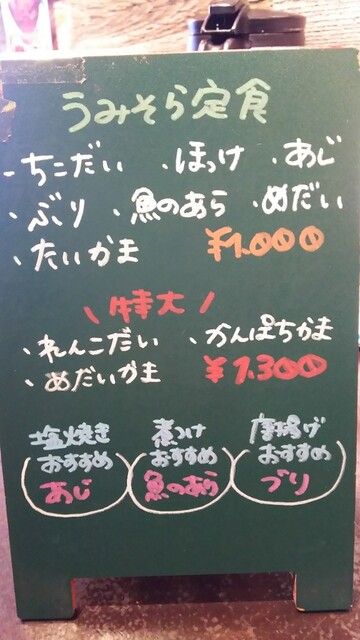 うみそら定食
・ちこだい ・ほっけ ・あじ
・ぶり ・魚のあら ・めだい
・たいかま ¥1.000
\ 特大 /
・れんこだい ・かんぱちかま
・めだいかま ¥1.300
塩焼き
おすすめ
あじ
煮つけ
おすすめ
魚のあら
唐揚げ
おすすめ
ブリ